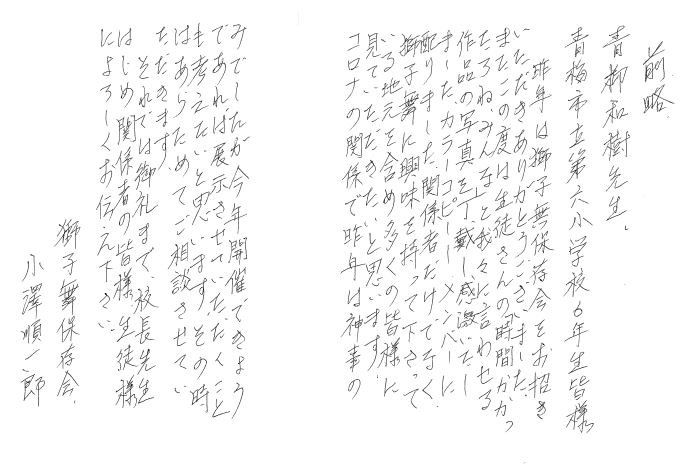 前略
青柳和樹先生、
青梅市立第六小学校6年生皆様
昨年は獅子舞保存会をお招き
いただきありがとうございました。
またこの度は生徒さんの「時間かかっ
たろね、みんな」と我々に言わせる
作品の写真を丁戴し感激いたし
ました。カラーコピーしメンバーに
配りました。関係者だけでなく、
獅子舞に興味を持って下さって
いる地元を含め多くの皆様に
見ていただきたいと思います。
コロナの関係で昨年は神事の
みでしたが今年開催できるよう
であれば展示させていただくこと
も考えたいと思います。その時
はあらためてご相談させてい
ただきます。
それでは御礼まで、校長先生
はじめ関係者の皆様、生徒様
によろしくお伝え下さい。
獅子舞保存会、
小澤順一郎